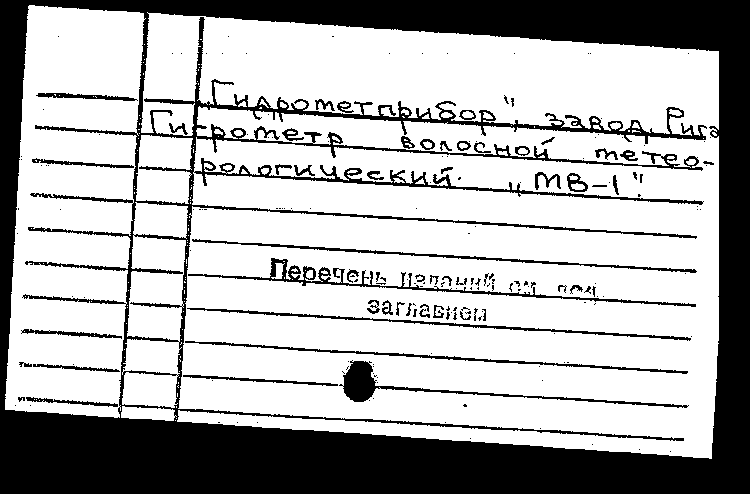 „Гидрометприбор", завод. Рига
Гигрометр волосной метео-
рологический. „МВ-1".
Перечень изданий см. под
заглавием